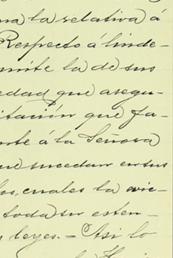 na la relativa á
Respecto á linde-
mite la de sus
edad que asegu-
itación que fa-
nte á la Senora
ue sucedan en sus
los, cuales la vic-
toda su esten-
s leyes.- Asi lo